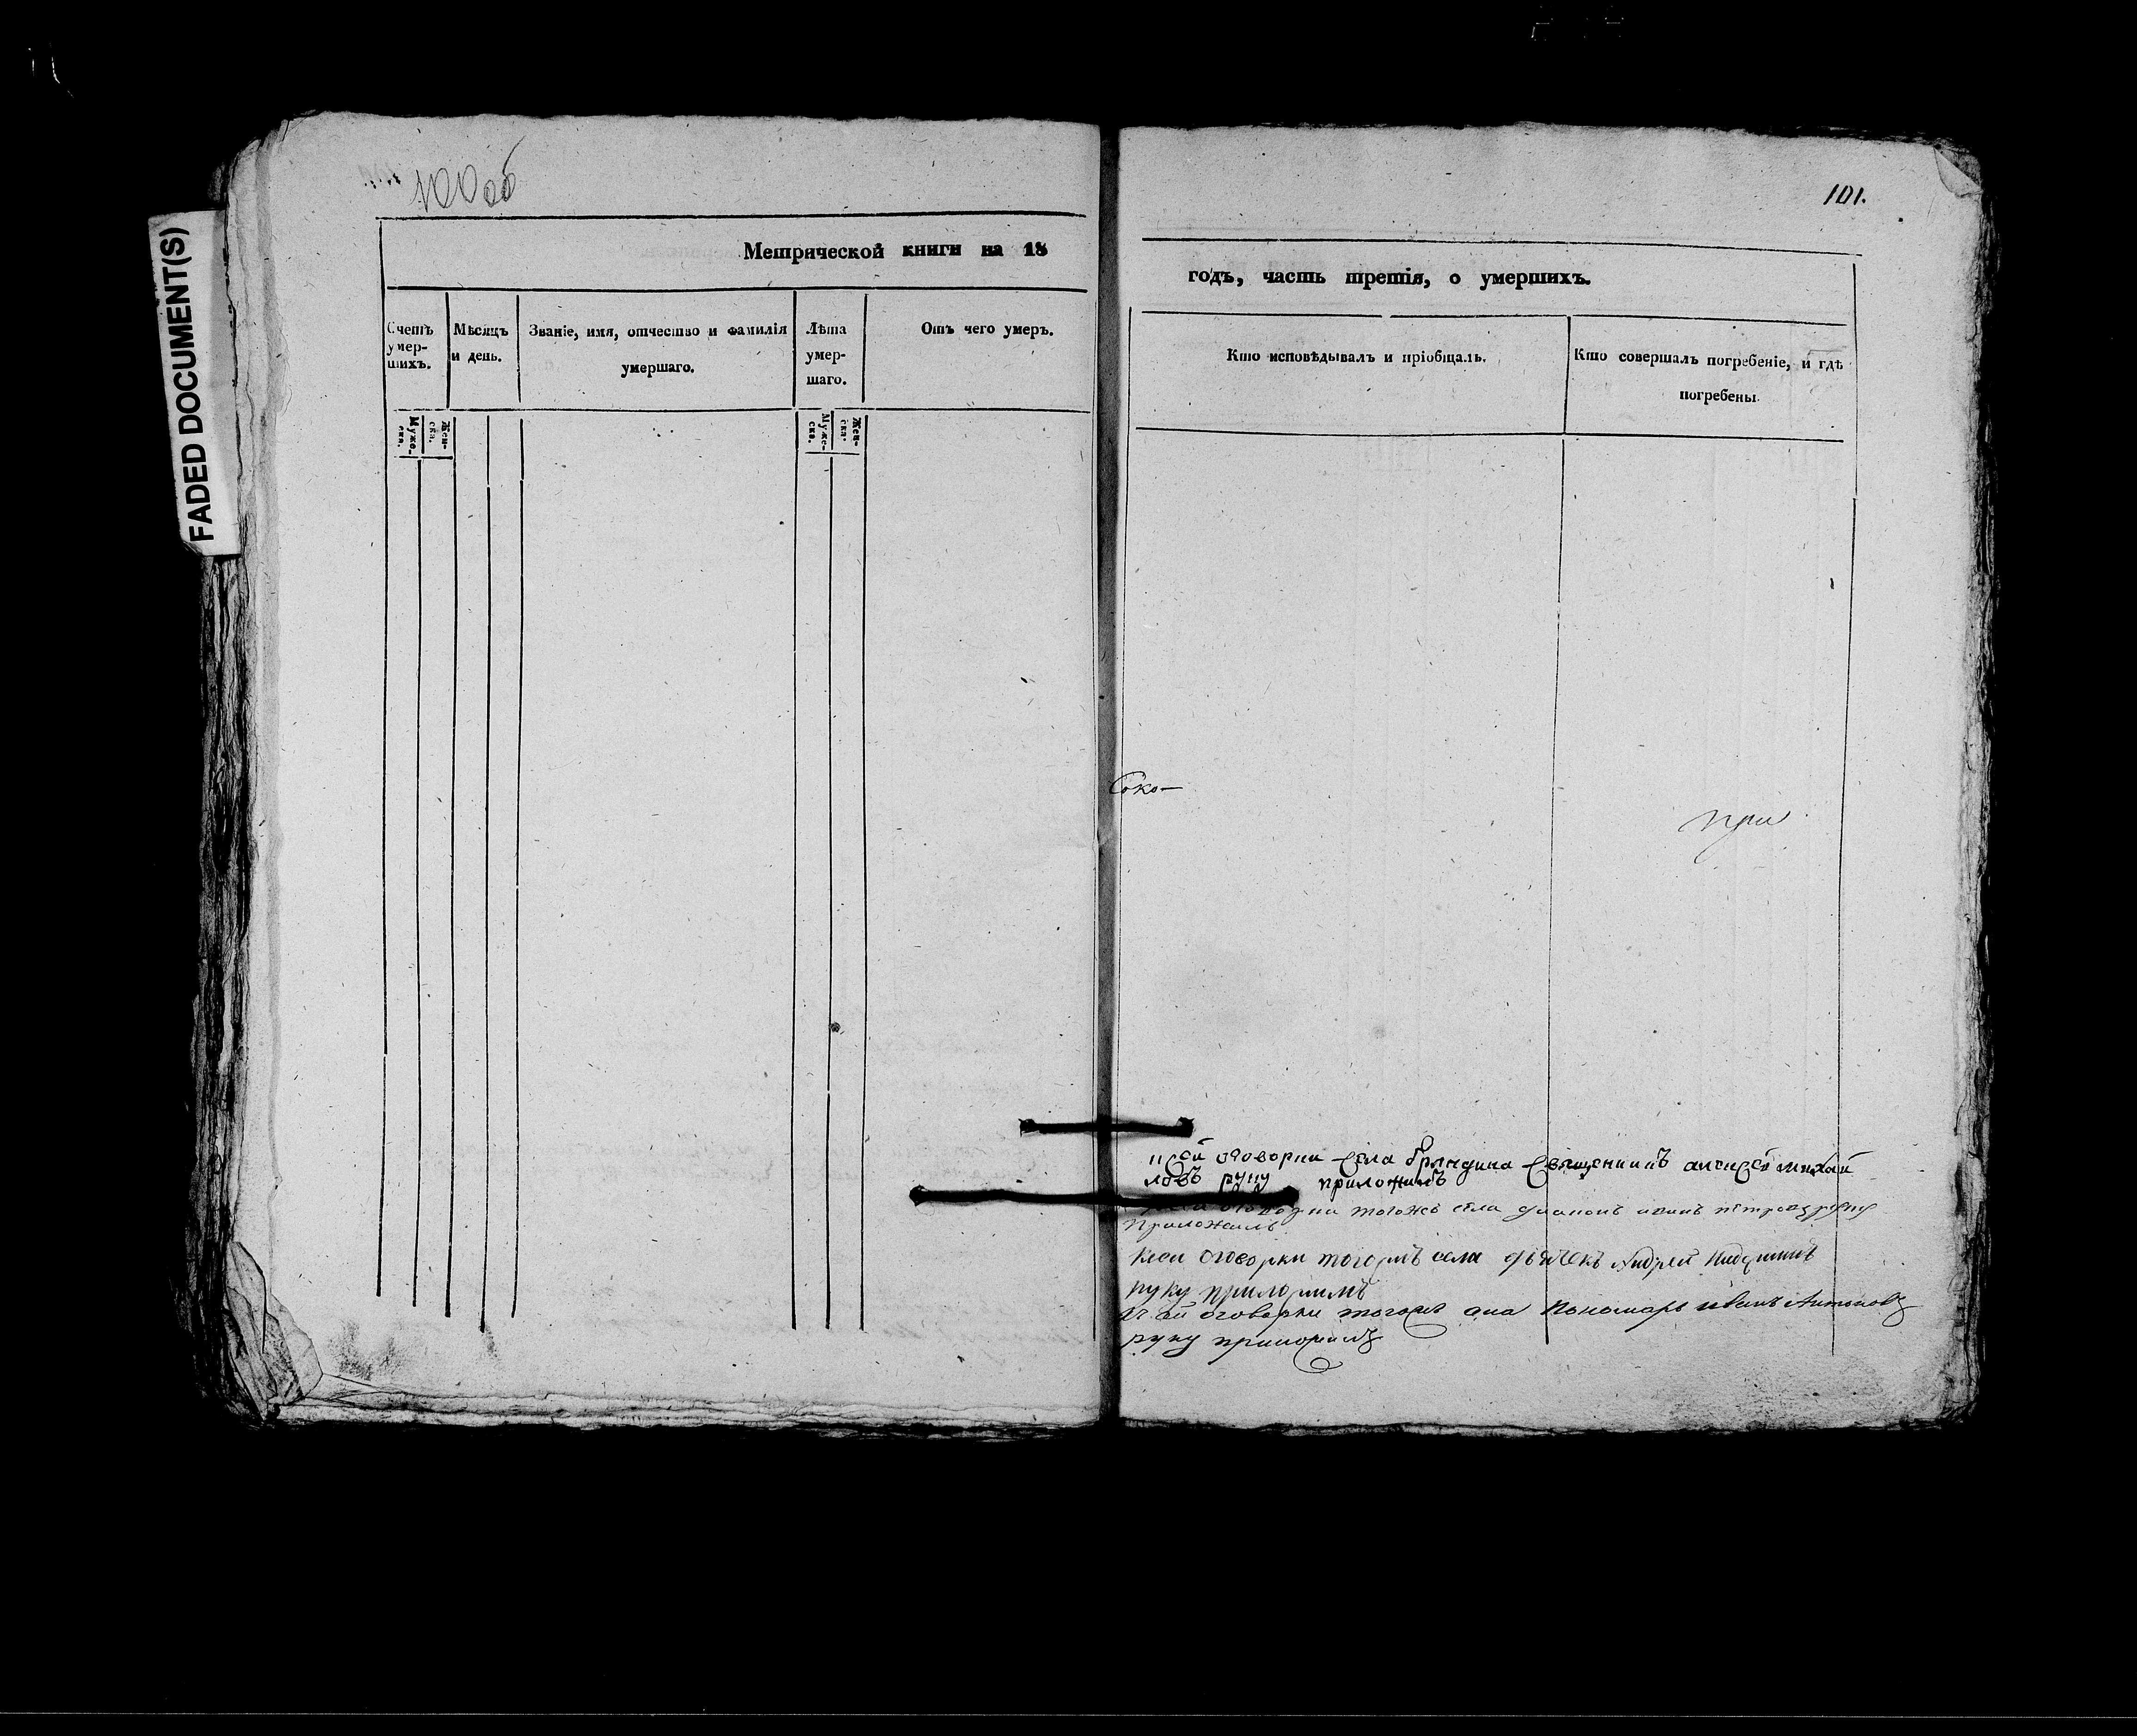 FADED DOCUMENT(S)
100 об
101.
Метрической книги на 18
годъ, часть третія, о умершихъ.
Счетъ умер-шихъ.
Мѣсяцъ и день.
Званіе, имя, отчество и фамилія умершаго.
Лѣта умер-шаго.
Отъ чего умеръ.
Кто исповѣдывалъ и пріобщалъ.
Кто совершалъ погребеніе, и гдѣ погребены.
Муже-ска.
Жен-ска.
Муже-ска.
Жен-ска.
Соко-
при
къ сей оговорки села Брандина священникъ алексей михай
ловъ руку приложилъ
оговорки тогожъ села диаконъ иванъ петровъ руку
приложилъ
К сеи оговорки тогожъ села дьячекъ Андрей
руку приложилъ
К сей оговорки тогожъ села Пономарь иванъ Антоновъ
руку приложилъ